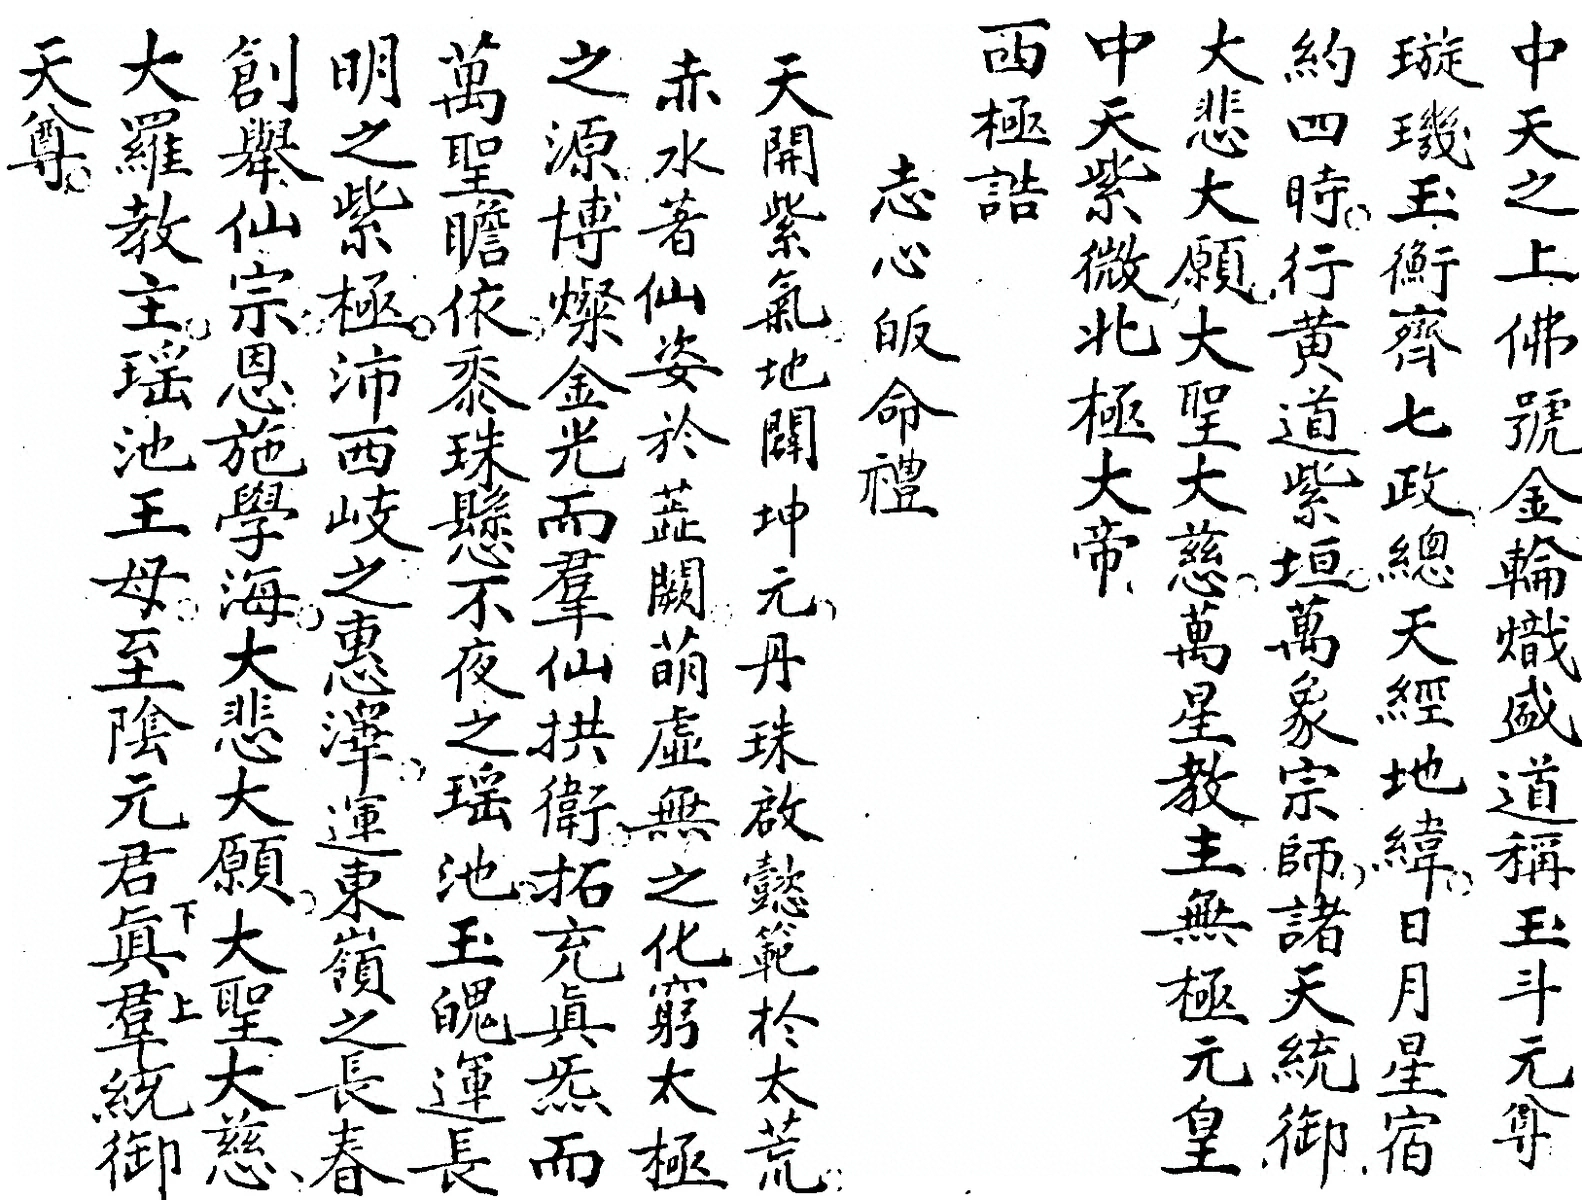 中天之上佛號金輪熾盛道稱玉斗元尊
璇璣玉衡齊七政總天經地緯。日月星宿
約四時。行黃道紫垣。萬象宗師。諸天統御
大悲大願。大聖大慈。萬星教主無極元皇
中天紫微北極大帝、
西極誥
志心皈命禮
天開紫氣地闢坤元、丹珠啟懿範於太荒。
赤水著仙姿於蕋闕。萌虛無之化窮太極
之源。博燦金光而羣仙拱衛。拓充眞炁而
萬聖瞻依。黍珠懸不夜之瑶池。玉魄運長
明之紫極。沛西岐之惠澤。運東嶺之長春
創舉仙宗。恩施學海。大悲大願。大聖大慈、
大羅教主。瑶池王母。至陰元君眞下羣上統御
天尊。